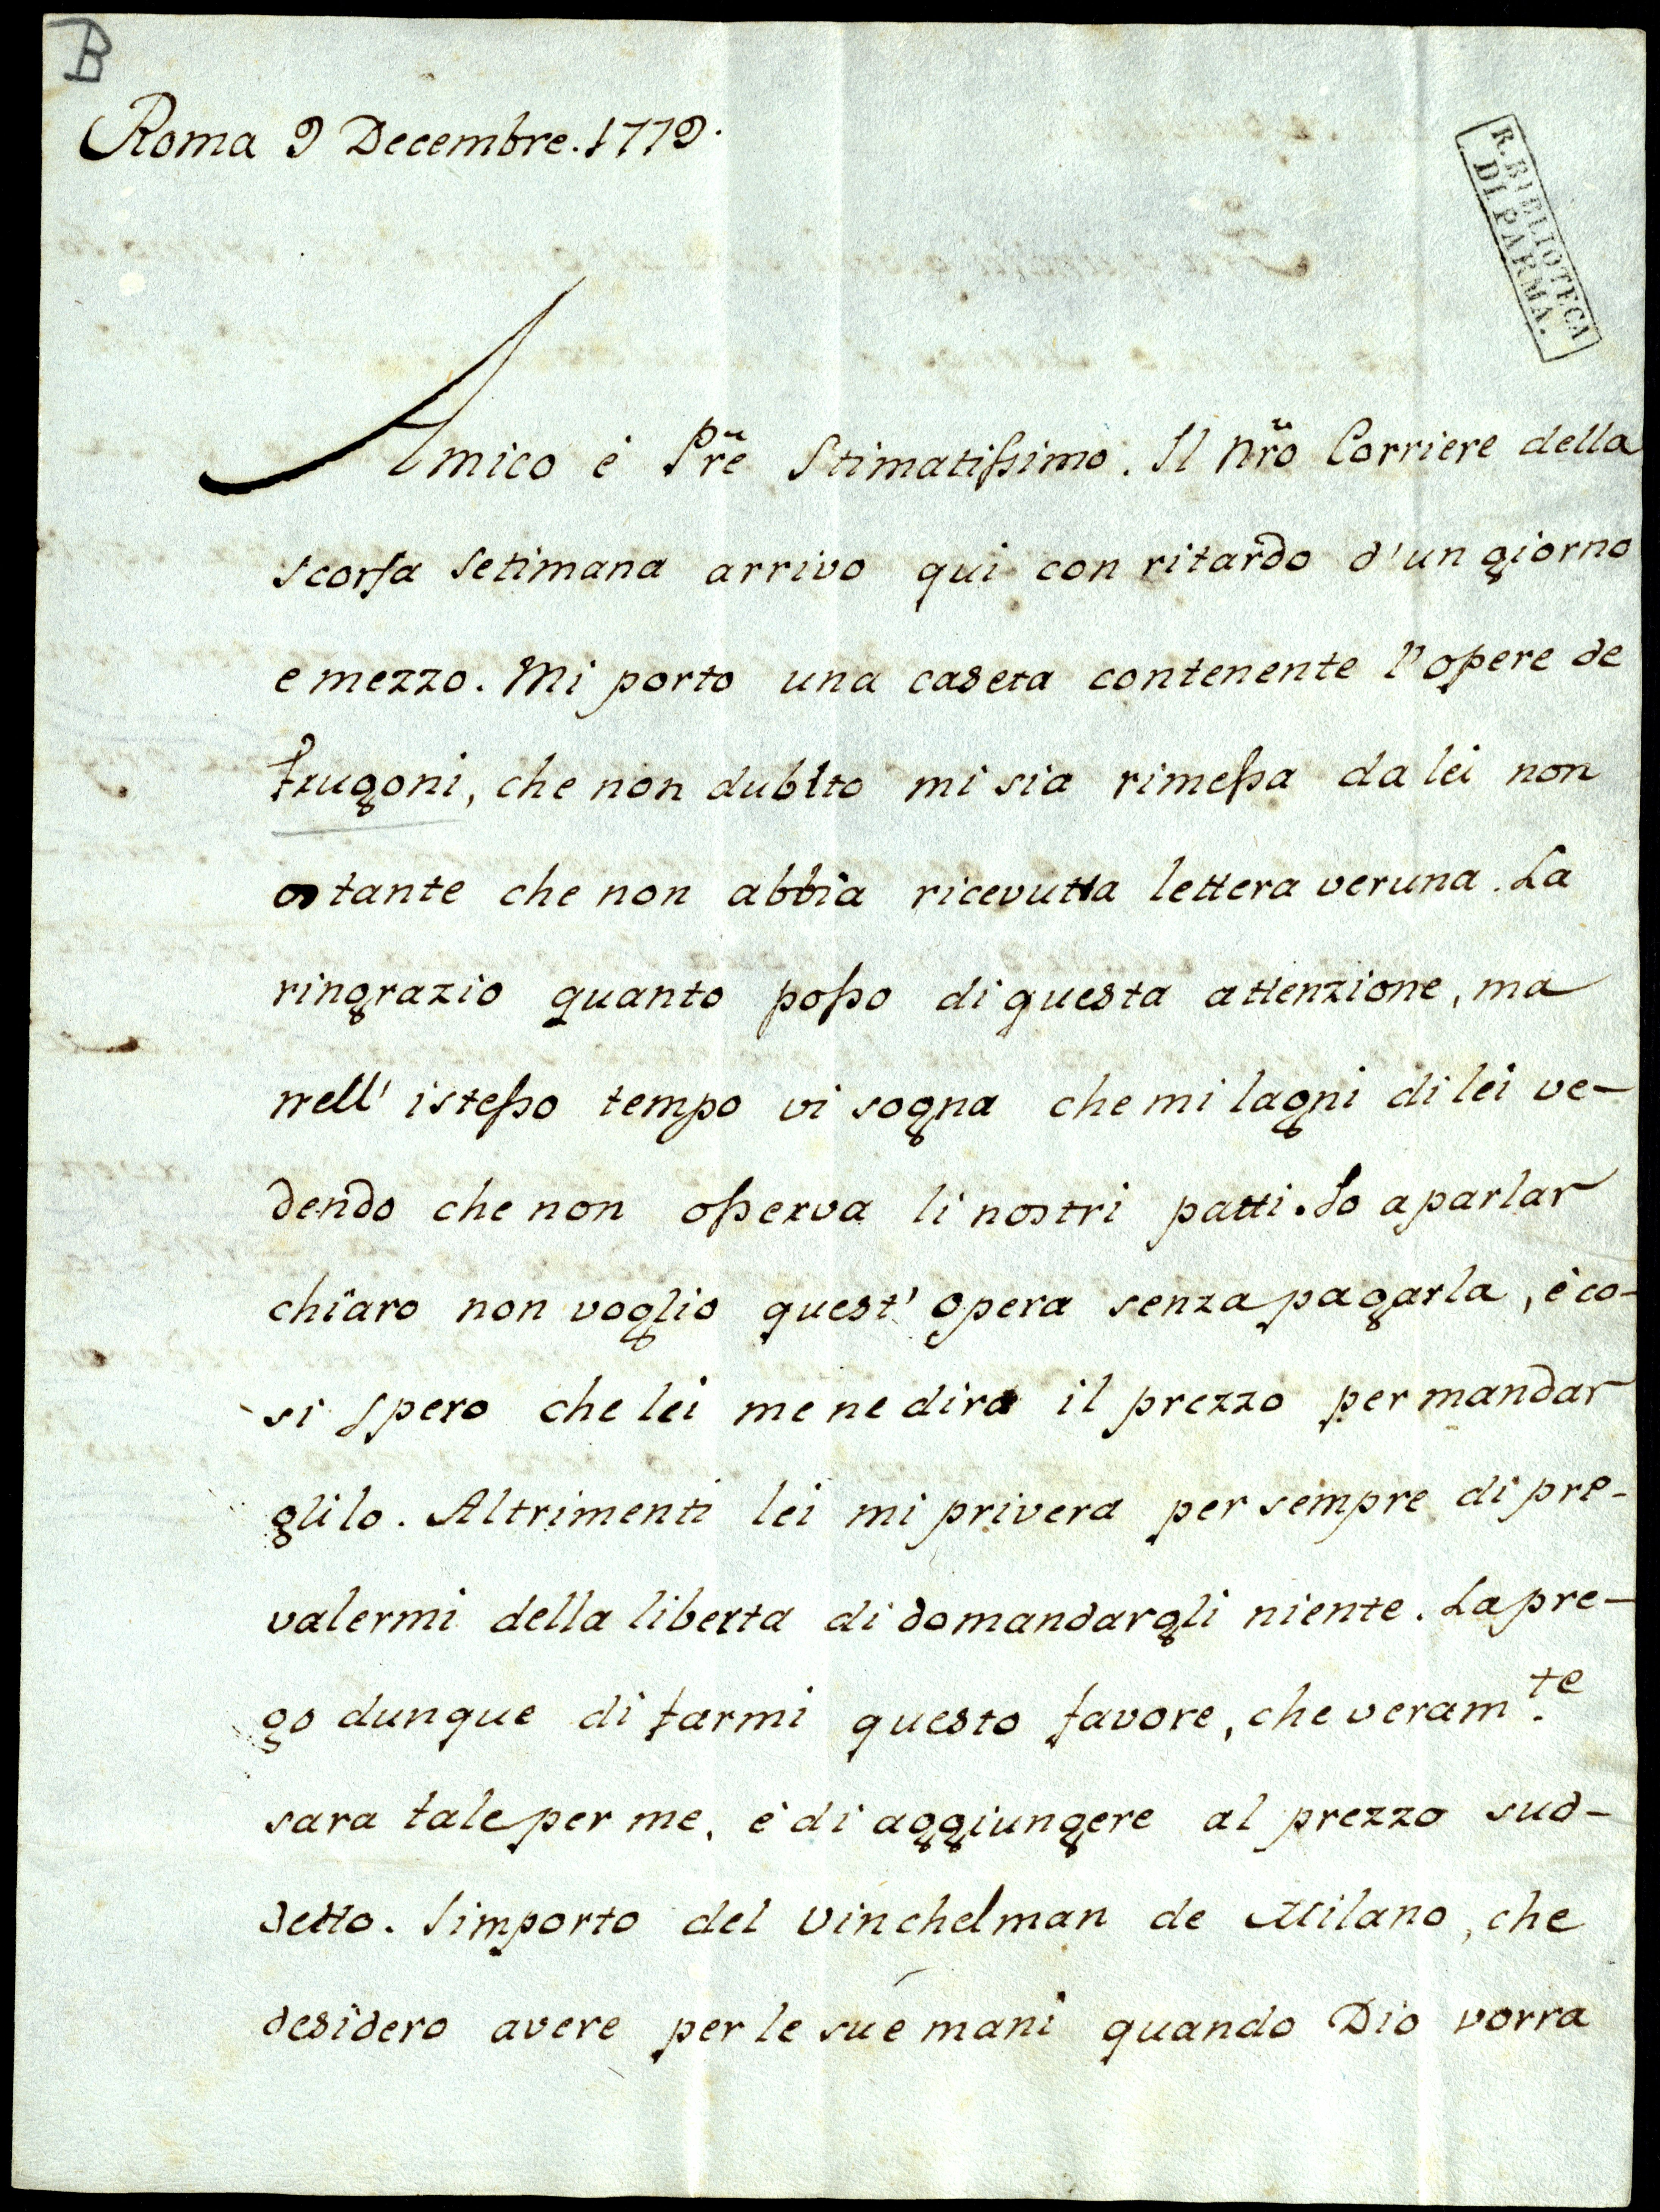 B
Roma 9 Decembre. 1779.
R. BIBLIOTECA
DI PARMA.
Amico è Pr̃e Stimatissimo. Il nr̃o Corriere della
scorsa setimana arrivo qui con ritardo d'un giorno
e mezzo. Mi porto una caseta contenente l'opere de
Frugoni, che non dubito mi sia rimessa da lei non
ostante che non abbia ricevutta lettera veruna. La
ringrazio quanto posso di questa attenzione, ma
nell' istesso tempo vi sogna che mi lagni di lei ve-
dendo che non osserva li nostri patti. Io a parlar
chiaro non voglio quest' opera senza pagarla, è co-
si spero che lei me ne dira il prezzo per mandar
glilo. Altrimenti lei mi privera per sempre di pre-
valermi della liberta di domandargli niente. La pre-
go dunque di farmi questo favore, che veram.te
sara tale per me, è di aggiungere al prezzo sud-
detto. l'importo del vinchelman de Milano, che
desidero avere per le sue mani quando Dio vorra